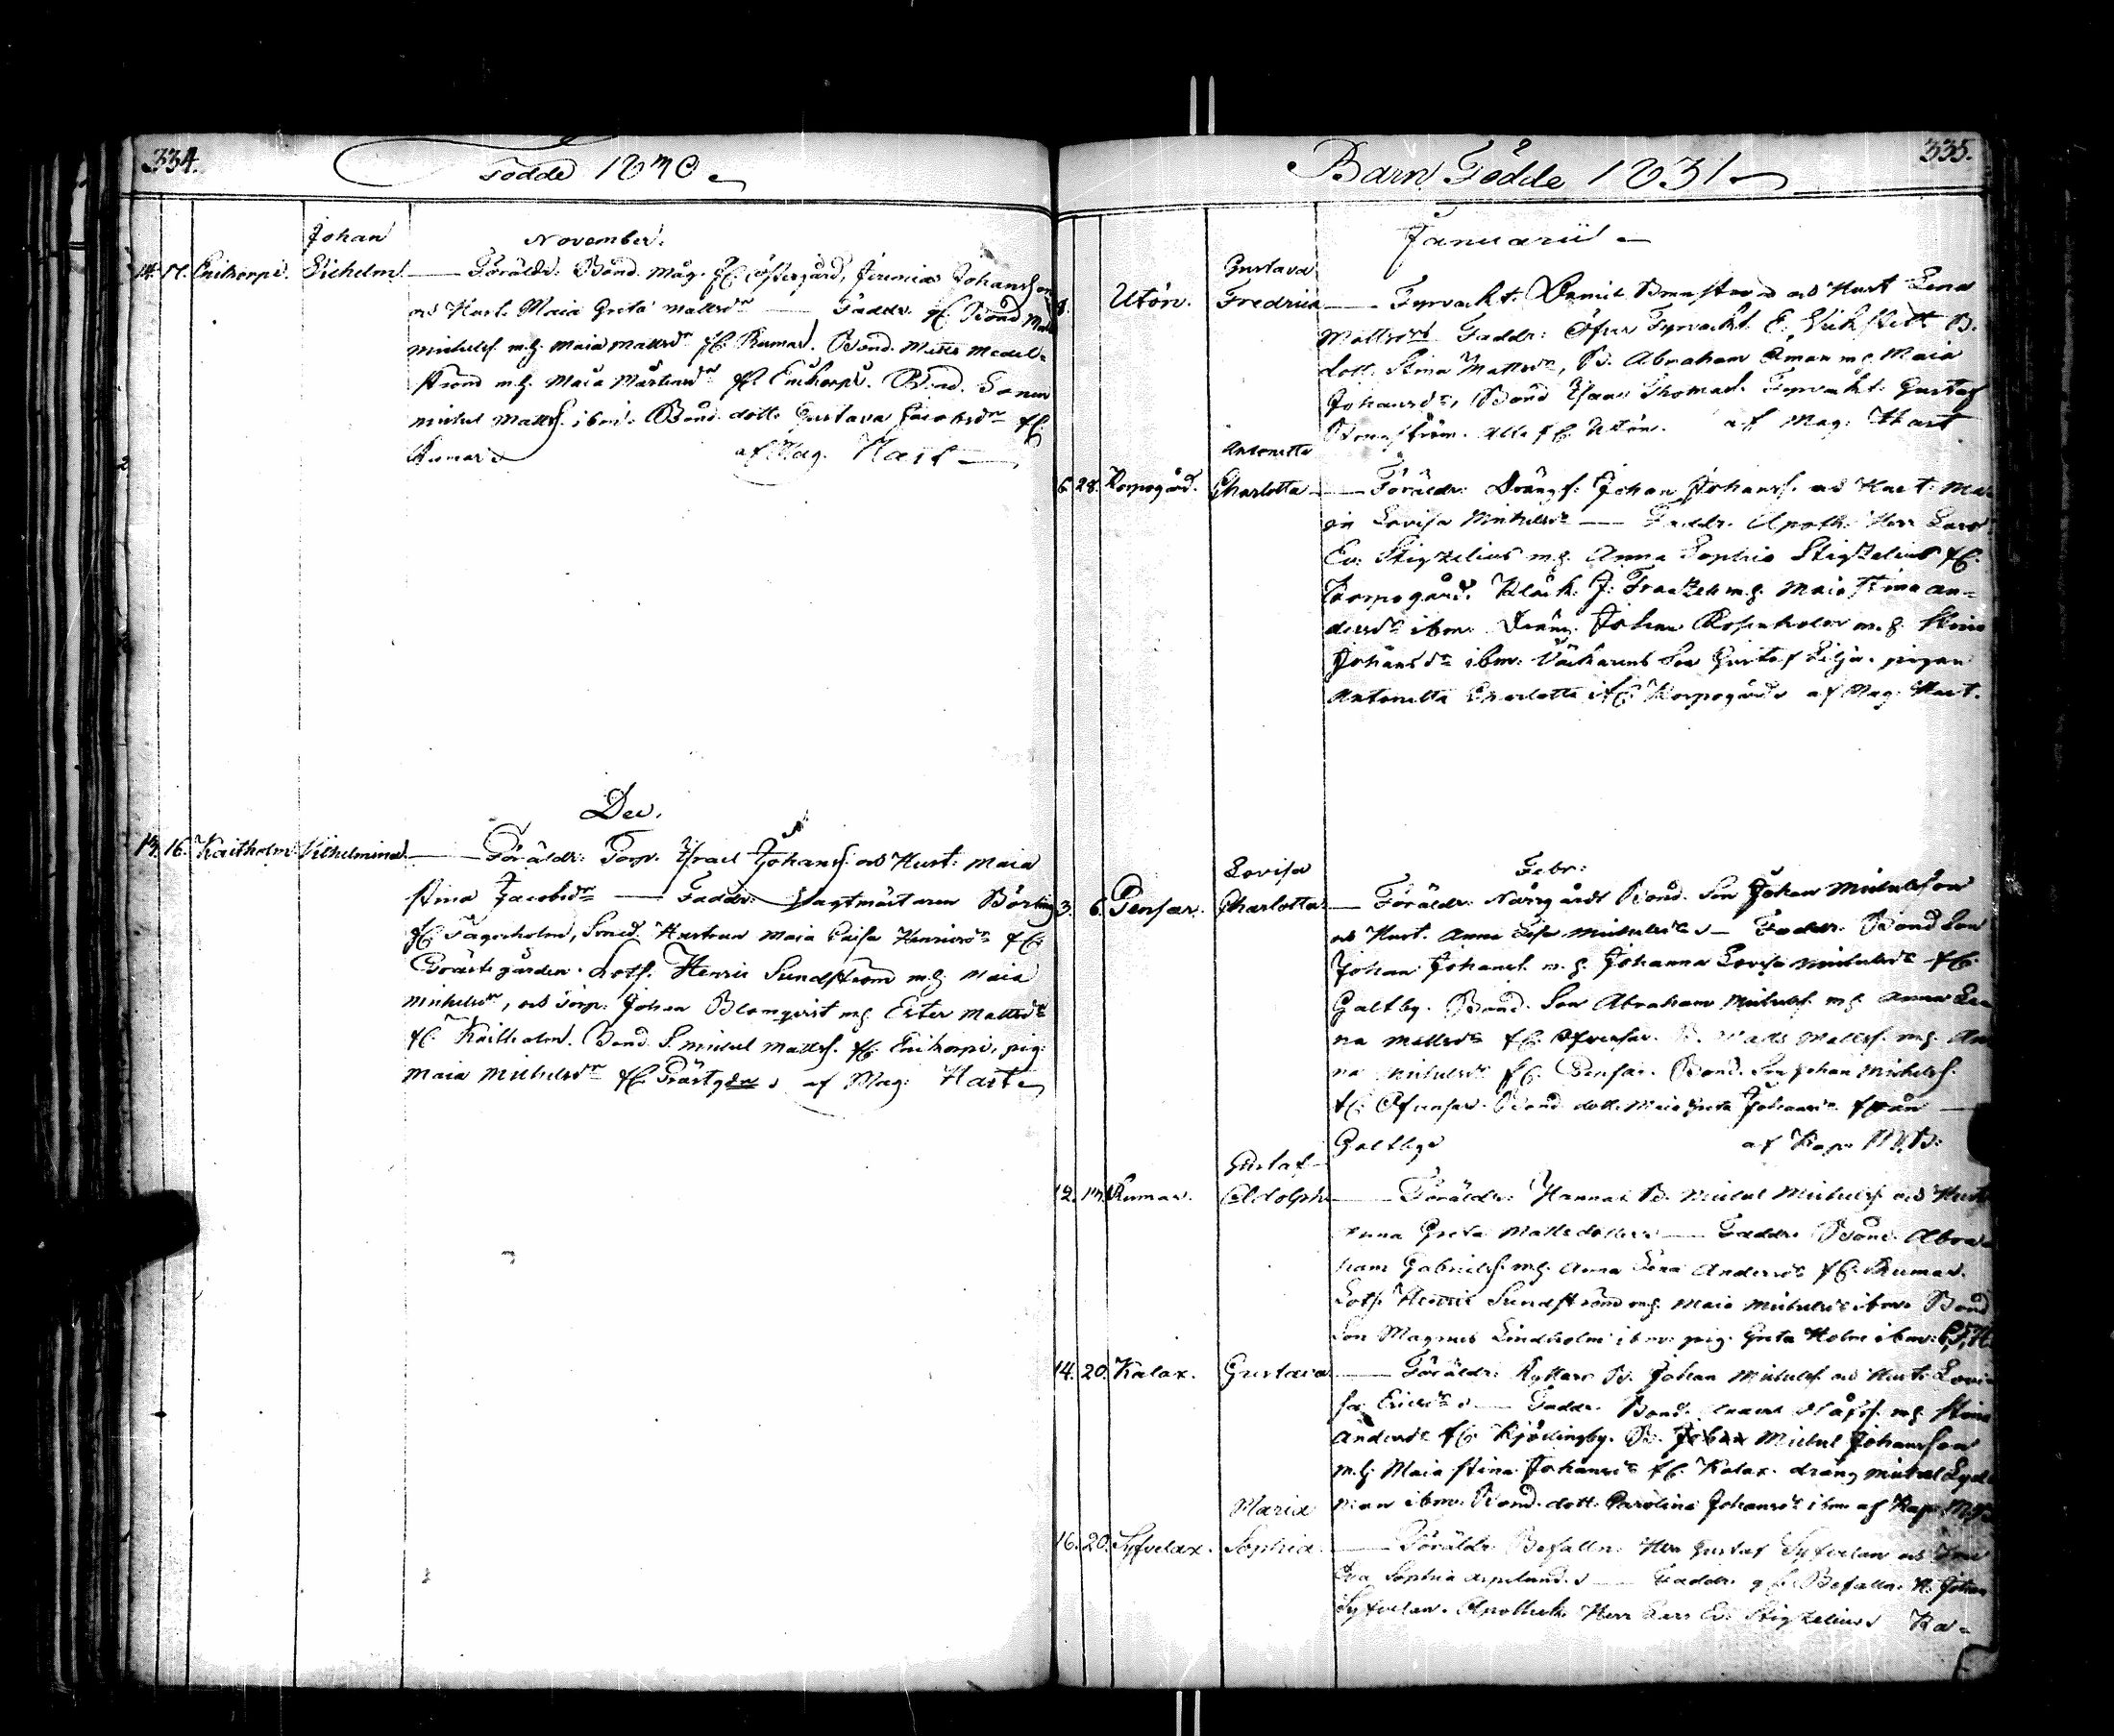 334.
Födde 1830
November.
14. 17. Enikorpi. Johan
Vilhelm. Föräldr. Bond. Måg. fr. Östergård, Jeremias Johansson
och Hust. Maia Greta Mattsdr Faddr. fr. Bond
Michelss. m.h. Maia Mattsdr fr. Rumar. Bond. Matts Medel-
strönd m.h. Maia Mårtensdr fr. Enikorpi. Bond. Sonen
Michel Mattss. ibm. Bond. dott. Gustava Jacobsdr fr.
Rumar af Mag. Hast
Dec.
13. 16. Kaitholm Vilhelmina. Föräldr. Torp. Israel Johanss. och Hust. Maia
Stina Jacobsdr Faddr. Vagtmästaren Börling
fr. Fågerholm, Smed. Hustrun Maia Caisa Henricsdr fr.
Prästegården. Lots. Henric Sundström m.h. Maia
Michelsdr, och Torp. Johan Blomqvist m.h. Ester Mattsdr
fr. Kaitholm. Bond. S. Michel Mattss. fr. Enikorpi, pig.
Maia Michelsdr fr. Prästg. af Mag. Hast
335.
Barn Födde 1831
Januarii
8. Utön. Gustava
Fredrica Fyrvakt. och Hust Lena
Mattsdr Faddr: Öfver Fyrvakt. E. B.
dott. Stina Mattsdr, B. Abraham Öman m.h. Maia
Johansdr, Bond Isaac Thomass. Fyrvakt. Gustaf
alla fr. Utön. af Mag. Hast
6. 28. Korpogård. Antonetta
Charlotta Föräldr: Drängs. Johan Johanss. och Hust. Ma-
ia Lovisa Michelsdr Faddr. Apoth. Herr Lars
Ev. Stigzelius m.h. Anna Sophia Stigzelius fr.
Korpogård. Klock. J. m.h. Maia Stina An-
dersdr ibm. Dräng. Johan Rosenholm m.h. Stina
Johansdr ibm. Son Gustaf Lilja. pigan
Antonetta Charlotta fr. Korpogård af Mag. Hast.
Febr:
3. 6. Pensar. Lovisa
Charlotta Föräldr. Norrgårds Bond. Son Johan Michelsson
och Hust. Anna Lisa Michelsdr Faddr. Bond Son
Johan Johanss. m.h. Johanna Lovisa Michelsdr fr.
Galtby. Bond. Son Abraham Michelss. m.h. Anna Le-
na Mattsdr fr. Öfvensar. B. Matts Mattss. m.h. An-
na Michelsdr fr. Pensar. Bond. Son Johan Michelss.
fr. Öfvensar. Bond. dott. Maia Greta Johansdr från
Galtby af Kap.
12. 13. Rumar. Gustaf
Adolph Föräldr: Hannas B. Michel Michelss. och Hust.
Anna Greta Mattsdotter Faddr. Bond. Abra-
ham Gabrielss. m.h. Anna Lena Andersdr fr. Rumar.
Lots. Henric Sundström m.h. Maia Michelsdr ibm. Bond
Son Magnus Lindholm ibm. pig. Greta Holm ibm.
14. 20. Kalax. Gustava Föräldr. Ryttars B. Johan Michelss. och Hust. Lovi-
sa Ericsdr Faddr. Bond. m.h. Stina
Andersdr fr. Kjödingby. B. Michel Johansson
m.h. Maia Stina Johansdr fr. Kalax. dräng Michel
man ibm. Bond. dott. Carolina Johansdr ibm af Kap.
16. 20. Syfvelax. Maria
Sophia. Föräldr. Befalln. Herr Gustaf Syfvelan och Fru
Eva Sophia Asplund. Faddr. Befalln. H. Johan
Syfvelan. Apothek. Herr Lars Ev. Stigzelius Ka-